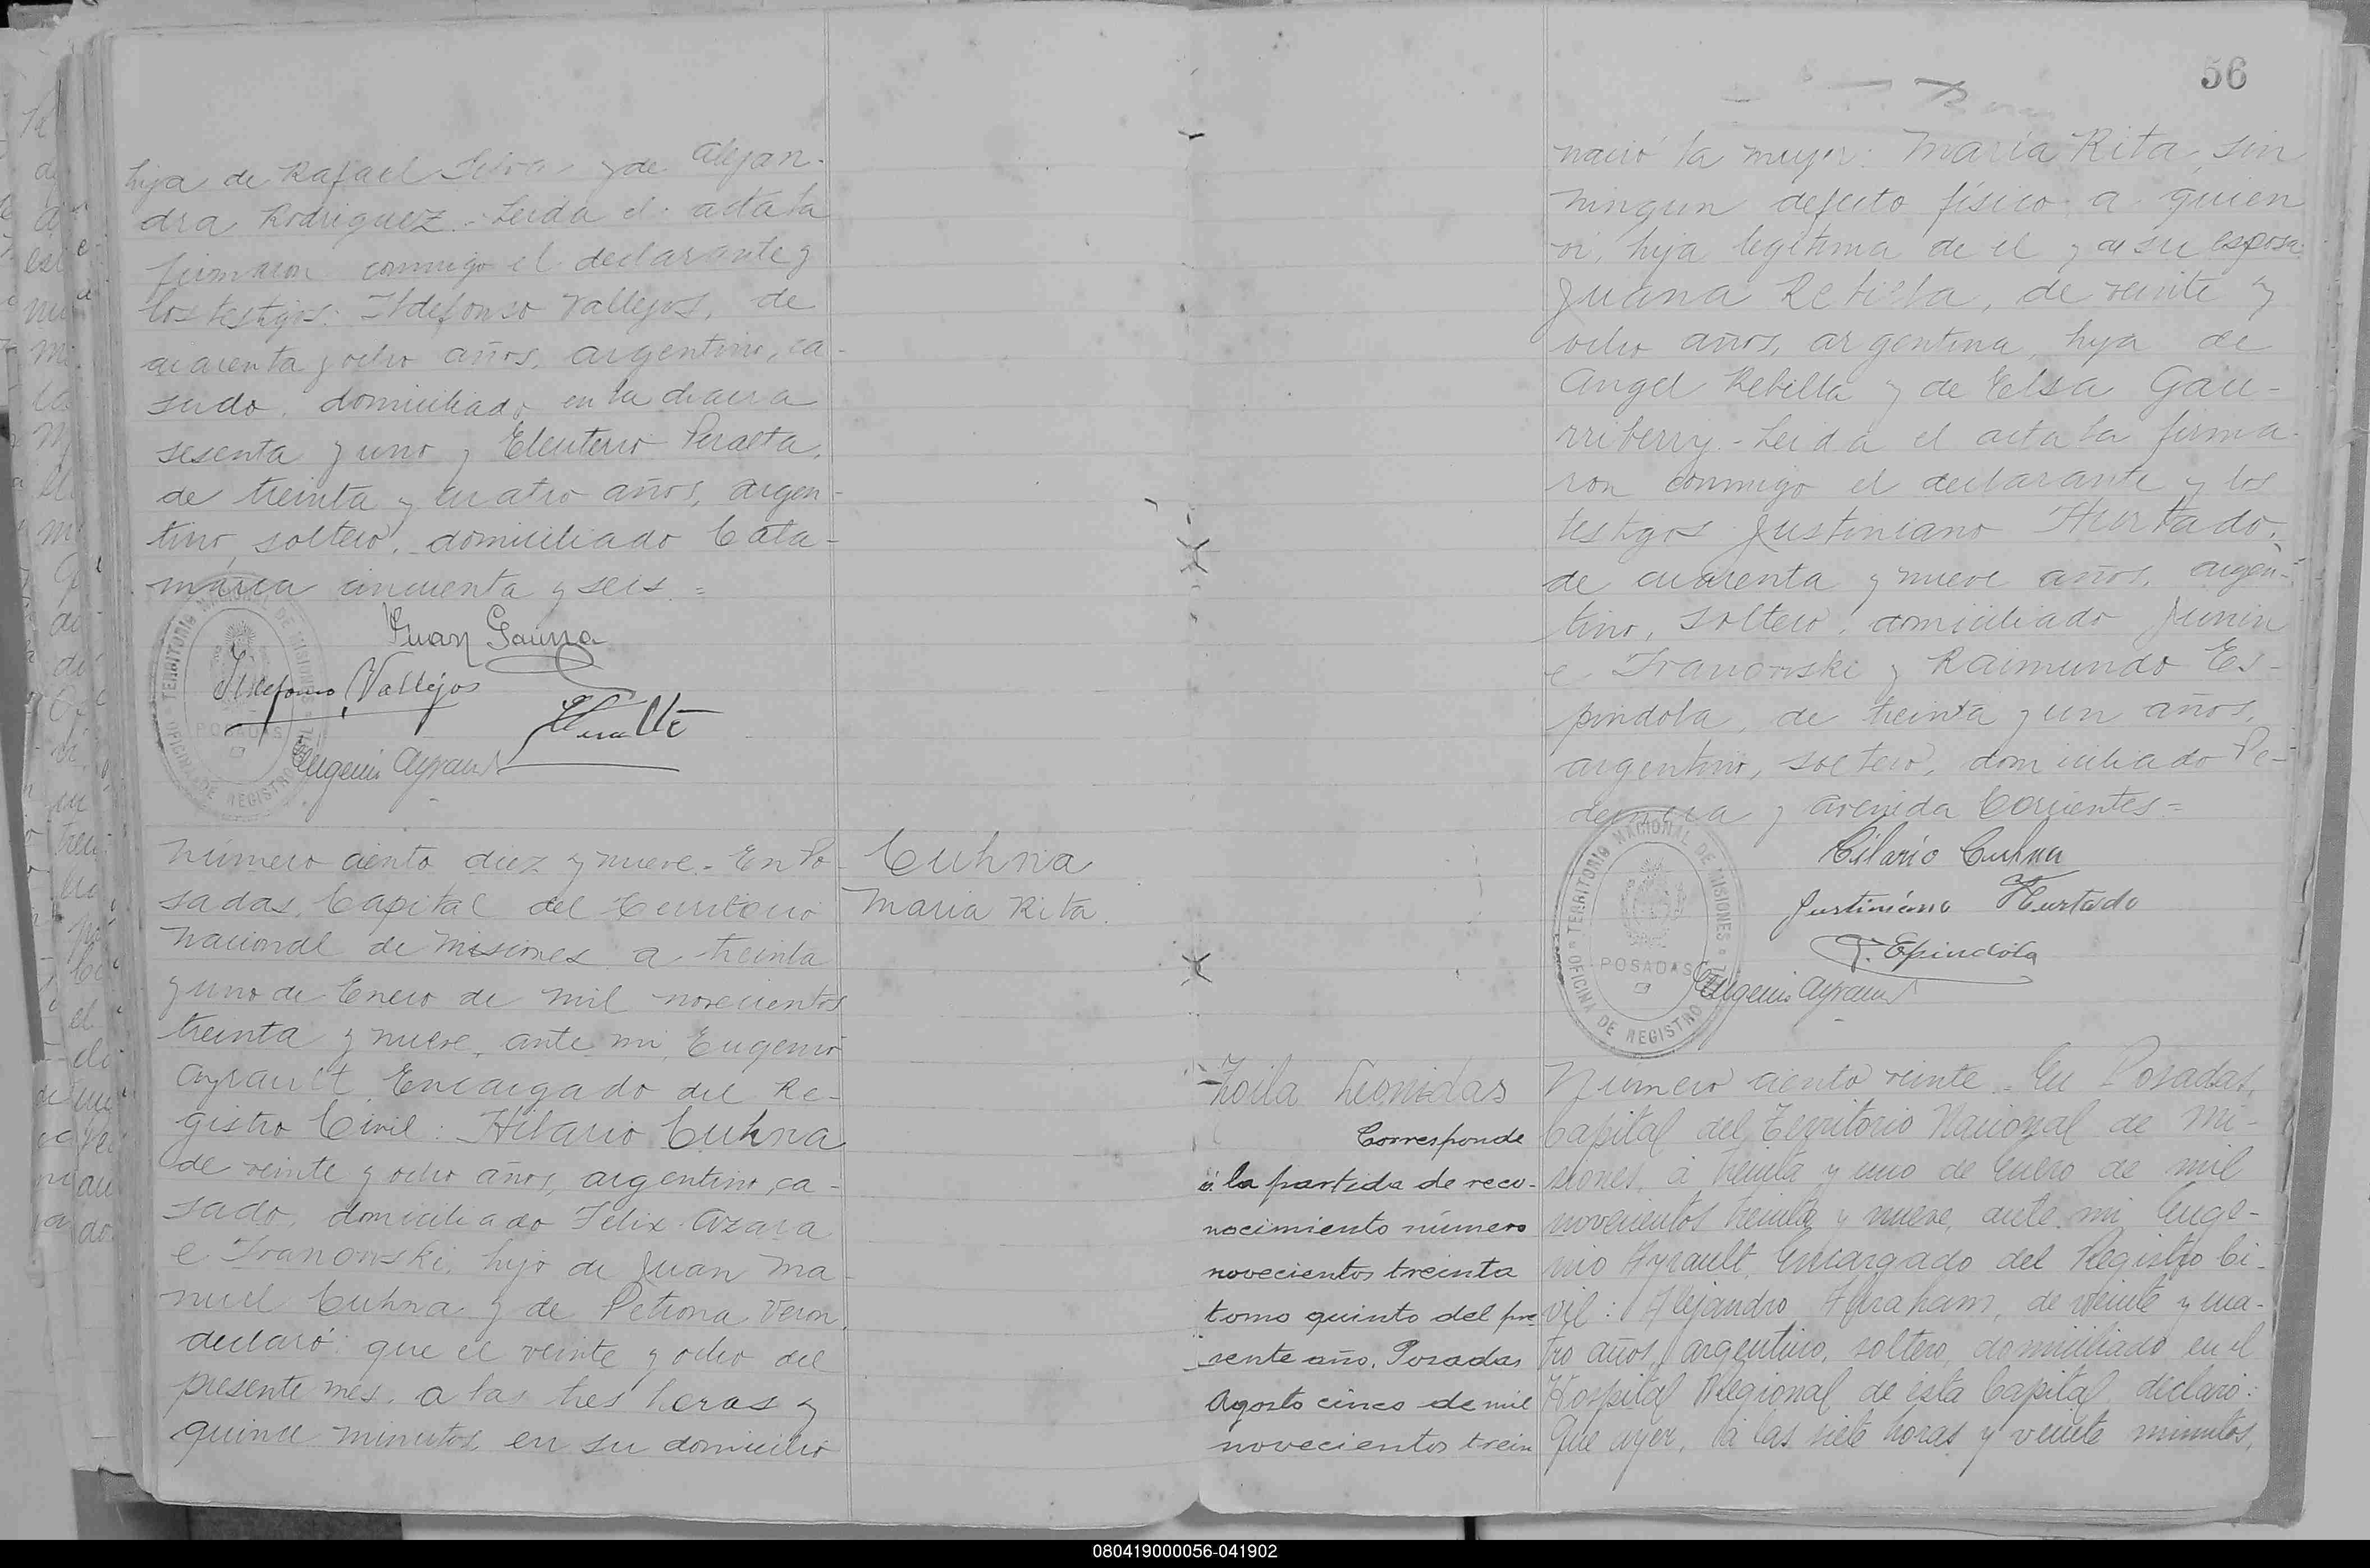 hija de Rafael Silva y de Alejan-
dra Rodriguez.- Leida el acta la
firmaron conmigo el declarante y
los testigos: Ildefonso Vallejos, de
cuarenta y ocho años, argentino, ca-
sado, domiciliado en la chacra
sesenta y uno y Eleuterio Peralta,
de treinta y cuatro años, argen-
tino, soltero, domiciliado Cata-
marca cincuenta y seis.=
Juan Gauna
Ildefonso Vallejos
Eugenio Ayrault
TERRITORIO NACIONAL DE MISIONES
POSADAS
OFICINA DE REGISTRO CIVIL
Número ciento diez y nueve.- En Po-
sadas, Capital del Territorio
Nacional de Misiones a treinta
y uno de Enero de mil novecientos
treinta y nueve, ante mi, Eugenio
Ayrault, Encargado del Re-
gistro Civil: Hilario Cuhna
de veinte y ocho años, argentino, ca-
sado, domiciliado Felix Azara
e Ivanowski, hijo de Juan Ma-
nuel Cuhna y de Petrona Veron,
declaró: que el veinte y ocho del
presente mes, a las tres horas y
quince minutos, en su domicilio
Cuhna
Maria Rita.
56
nació la mujer: Maria Rita, sin
ningun defecto físico a quien
vi, hija legitima de el y de su esposa
Juana Rebilla, de veinte y
ocho años, argentina, hija de
Angel Rebilla y de Elsa Gau-
rriberry.- Leida el acta la firma-
ron conmigo el declarante y los
testigos Justiniano Hurtado,
de cuarenta y nueve años, argen-
tino, soltero, domiciliado Junin
e Ivanowski y Raimundo Es-
pindola, de treinta y un años,
argentino, soltero, domiciliado Pe-
dernera y avenida Corrientes=
Hilario Cuhna
Justiniano Hurtado
R. Epindola
Eugenio Ayrault
TERRITORIO NACIONAL DE MISIONES
POSADAS
OFICINA DE REGISTRO CIVIL
Zoila Leonidas
Corresponde
á la partida de reco-
nocimiento número
novecientos treinta
tomo quinto del pre-
sente año. Posadas
Agosto cinco de mil
novecientos trein
Número ciento veinte.- En Posadas,
Capital del Territorio Nacional de Mi-
siones, á treinta y uno de Enero de mil
novecientos treinta y nueve, ante mi Euge-
nio Ayrault, Encargado del Registro Ci-
vil: Alejandro Abraham, de veinte y cua-
tro años, argentino, soltero, domiciliado en el
Hospital Regional de ésta Capital, declaró:
Que ayer, á las siete horas y veinte minutos,
080419000056-041902